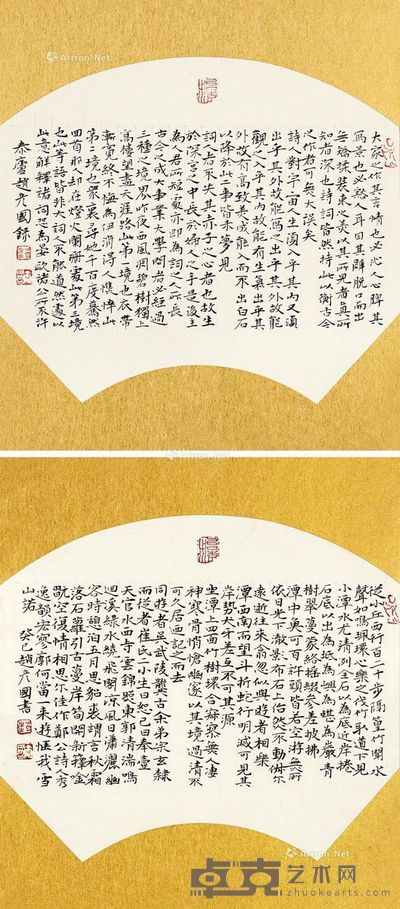 Artron.Net
大家之作其言情也必沁人心脾其
寫景也必豁人耳目其辭脫口而出
無矯揉裝束之态以其所見者真所
知者深也詩詞皆然持此以衡古今
之作者可無大误矣
詩人對宇宙人生須入乎其內又須
出乎其外入乎其內故能寫之出乎其外故能
觀之入乎其內故能有生氣出乎其
外故有高致美成能入而不出白石
以降於此事皆未夢見
詞人者不失其赤子之心者也故生
於深宮之中長於婦人之手是後主
為人君所短處亦即為詞人所長
古今之成大事業大學問者必經過
三種之境界昨夜西風凋碧樹獨上
高樓望盡天涯路此第一境也衣帶
漸寬終不悔為伊消得人憔悴此
第二境也眾裏尋他千百度驀然
回首那人却在燈火闌珊處此第三境
也此等語皆非大詞人不能道然遽以
此意解釋諸詞恐為晏歐諸公所不許
泰唐趙彦國錄
Artron.Net
從小丘西行百二十步隔篁竹聞水
聲如鳴珮環心樂之伐竹取道下見
小潭水尤清洌全石以為底近岸捲
石底以出為坻為嶼為嵁為巖青
樹翠蔓蒙絡搖綴參差披拂
潭中魚可百許頭皆若空游無所
依日光下澈影布石上佁然不動俶爾
遠逝往來翕忽似與遊者相樂
潭西南而望斗折蛇行明滅可見其
岸勢犬牙差互不可知其源
坐潭上四面竹樹環合寂寥無人淒
神寒骨悄愴幽邃以其境過清不
可久居迺記之而去
同遊者吳武陵龔古余弟宗玄隸
而從者崔氏二小生曰恕己曰奉壹
天宮水西寺雲錦照東郭清湍鳴
迴溪綠水繞飛閣涼風日瀟灑幽
客時憩泊五月思貂裘謂言秋霜
落石蘿引古蔓岸筍開新籜吟
翫空復情相思爾佳作鄭公詩人秀
逸韻宏寥廓何當一來遊愜我雪
山諾 癸巳趙彦國書
Artron.Net
卓克艺术网
www.zhuokearts.com